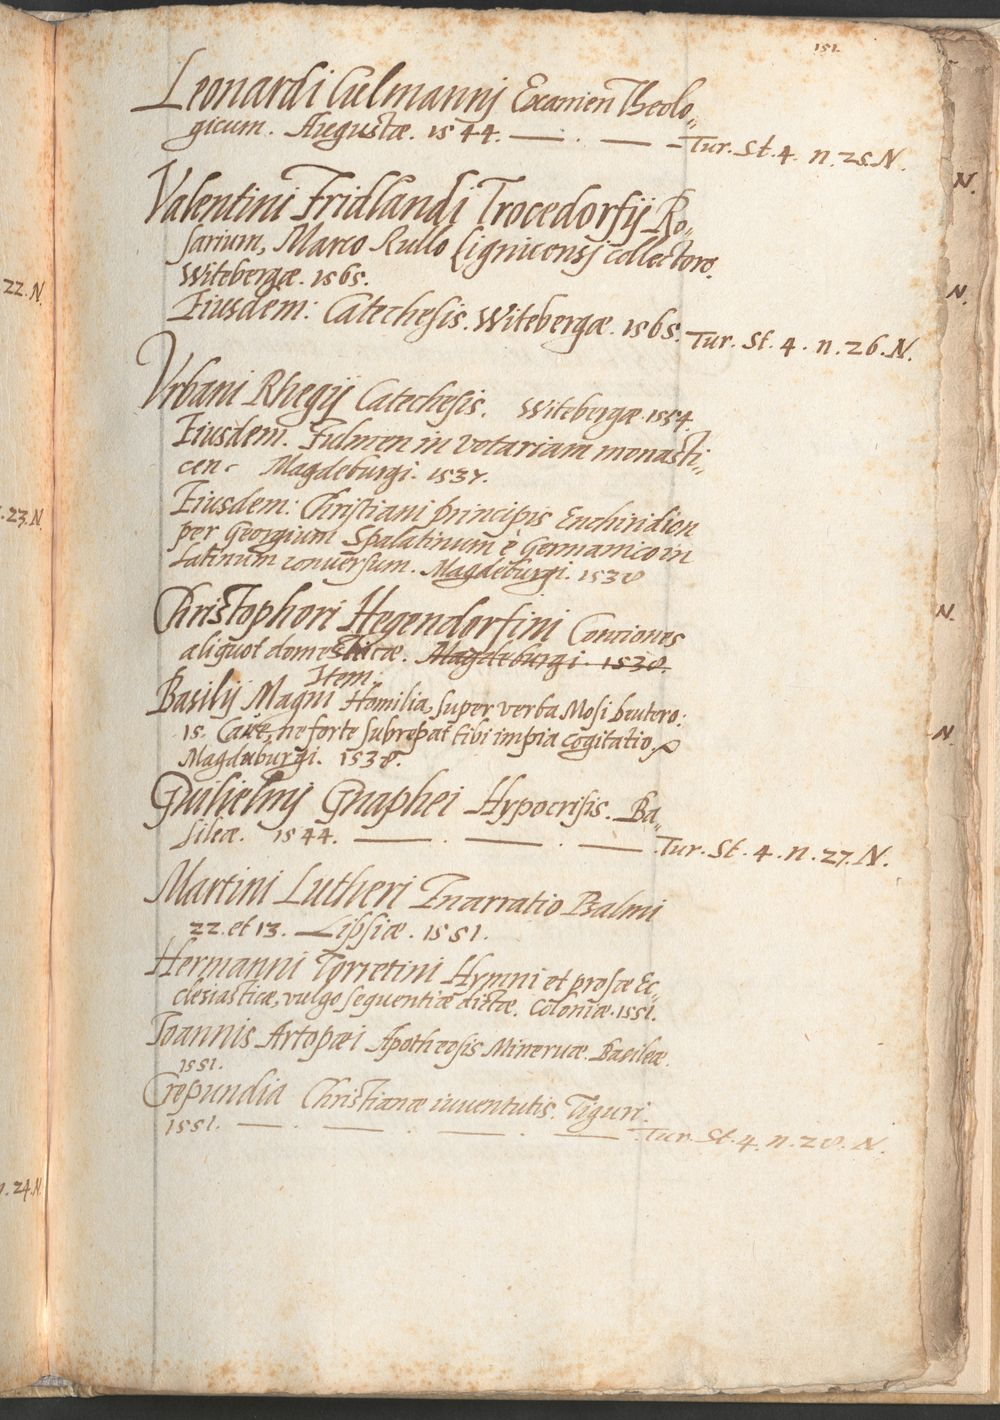 151.
Leonardi Culmannj Examen Theolo„
gicum. Augustæ. 1544. — . — – Tur. St. 4. n. 25. N.
Valentini Fridlandj Trocedorfij Ro„
sarium, Marco Rullo Lignicensj collectore.
Witebergæ. 1565.
Eiusdem: Catechesis. Witebergæ. 1565. Tur. St. 4. n. 26. N.
Vrbani Rhegij Catechesis. Witebergæ. 1554.
Eiusdem. Fulmen in votariam monasti„
cen. Magdeburgi. 1537.
Eiusdem: Christiani Principis Enchiridion
per Georgium Spalatinum è Germanico in
Latinum conuersum. Magdeburgi. 1538
Christophori Hegendorfini Conciones
aliquot domesticæ. Magdeburgi. 1538.
Item:
Basilij Magni Homilia, super verba Mosi Deutero:
15. Caue, ne forte subrepat tibi impia cogitatio.
Magdeburgi. 1538.
Guilielmj Gnaphei Hypocrisis. Ba„
sileæ. 1544. — . — . — Tur. St. 4. n. 27. N.
Martini Lutheri Enarratio Psalmi
22. et 13. Lipsiæ. 1551.
Hermanni Torretini Hymni et prosæ Ec„
clesiasticæ, vulgo sequentiæ dictæ. Coloniæ. 1551.
Ioannis Artopæi Apotheosis Mineruæ. Basileæ.
1551.
Crepundia Christianæ iuuentutis. Tiguri.
1551. — . — . — . — Tur. St. 4. n. 28. N.
22. N.
. 23. N.
n. 24. N.
N.
N.
N.
N.